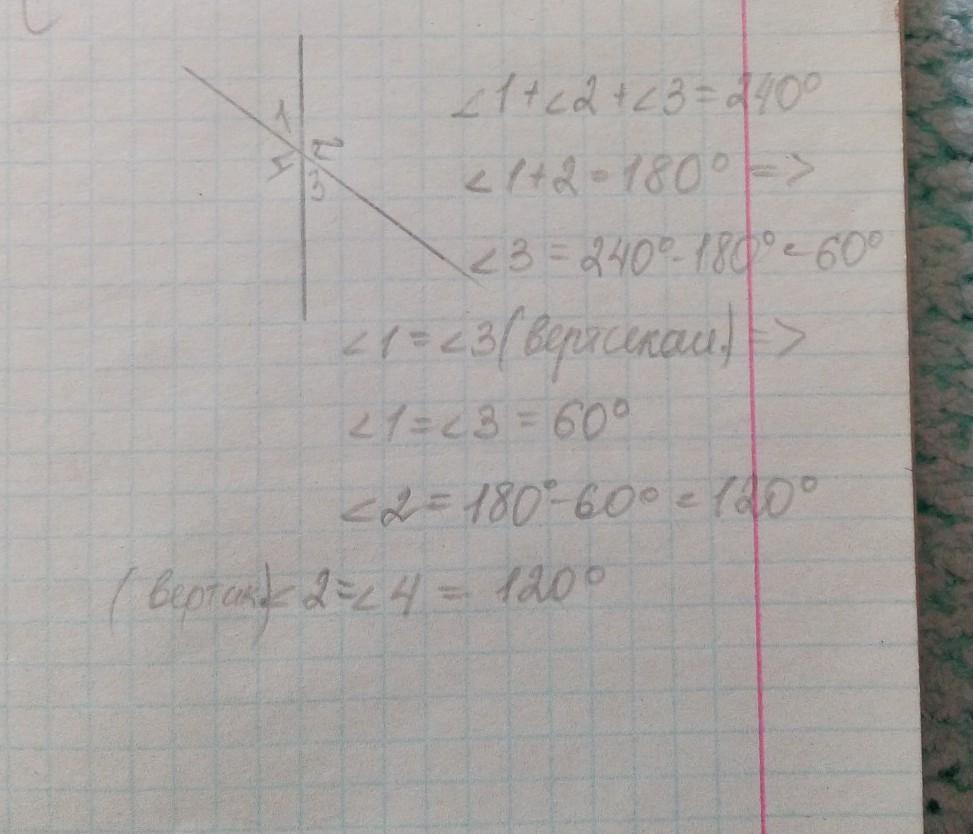 1
2
4
3
∠1+∠2+∠3=240°
∠1+2=180° =>
∠3=240°-180°=60°
∠1=∠3(вертикал.) =>
∠1=∠3=60°
∠2=180°-60°=120°
(вертик.)∠2=∠4=120°